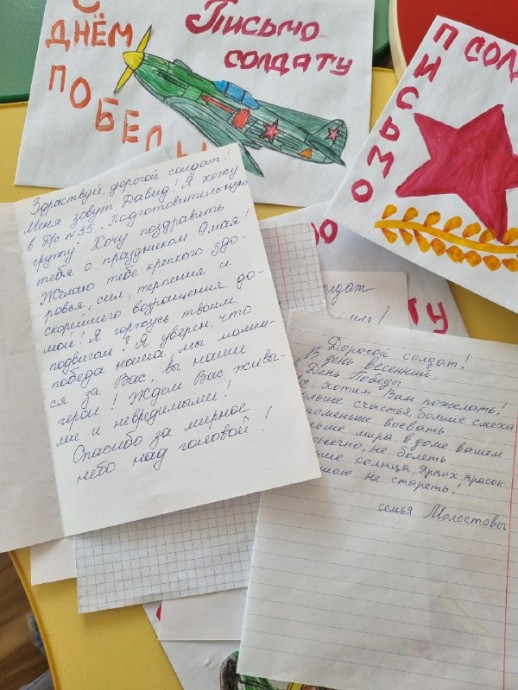 С
ДНЁМ
ПОБЕДЫ
Письмо
солдату
ПИСЬМО
СОЛД
Здравствуй, дорогой солдат!
Меня зовут Давид! Я хожу
в д/с №35. Подготовительную
группу. Хочу поздравить
тебя с праздником 9 мая!
Желаю тебе крепкого здо-
ровья, сил, терпения и
скорейшего возвращения до-
мой! Я горжусь твоим
подвигом! Я уверен, что
победа наша, мы молим-
ся за Вас, вы наши
герои! Ждем Вас живы-
ми и невредимыми!
Спасибо за мирное
небо над головой!
лдат
ту
Дорогой солдат!
В день весенний.
День Победы
хотим Вам пожелать!
льше счастья, больше смеха
поменьше воевать
ьше мира в доме вашем
конечно, не болеть
ше солнца, ярких красок
не стареть!
семья Молостовы